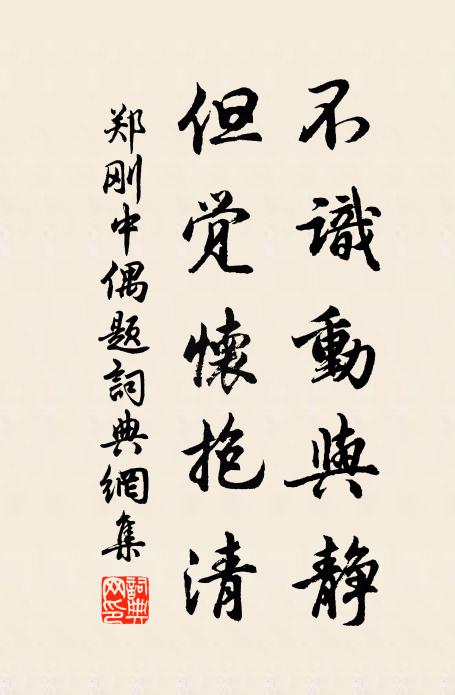 不識動與静
但觉懷抱清
郑刚中偶题詞典網集
詞典網印